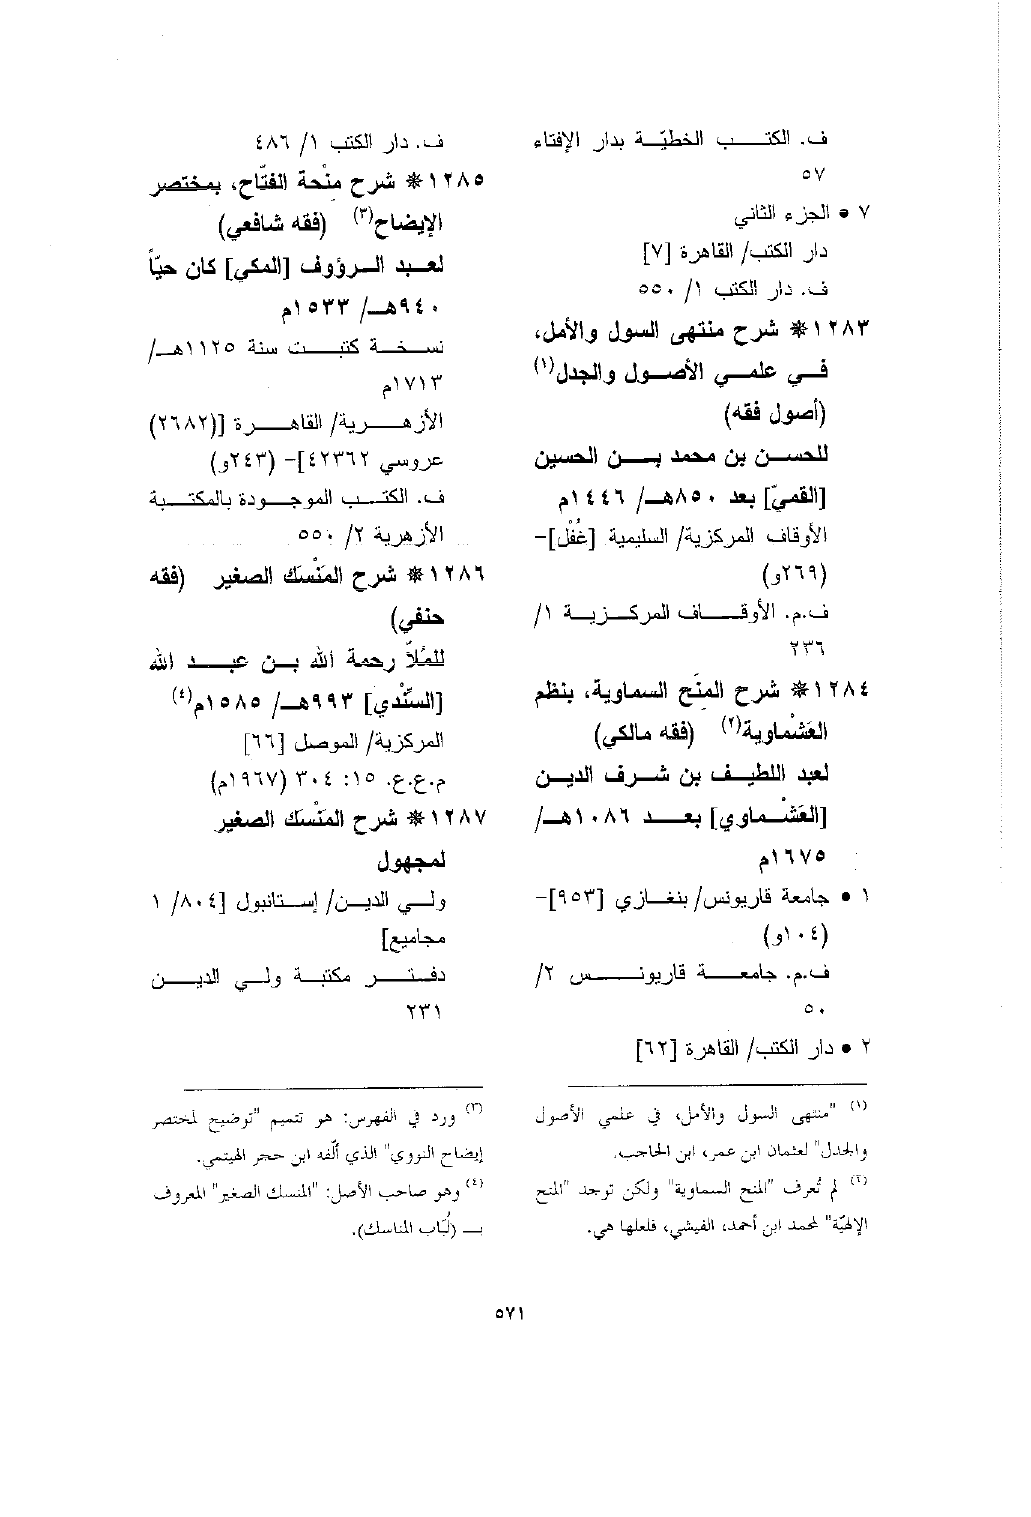 ف. الكتب الخطيّة بدار الإفتاء
٥٧
٧ • الجزء الثاني
دار الكتب/ القاهرة [٧]
ف. دار الكتب ١/ ٥٥٠
١٢٨٣* شرح منتهى السول والأمل،
في علمي الأصول والجدل(١)
(أصول فقه)
للحسن بن محمد بن الحسين
[القميّ] بعد ٨٥٠هـ/ ١٤٤٦م
الأوقاف المركزية/ السليمية [غُفْل]-
(٢٦٩و)
ف.م. الأوقاف المركزية ١/
٢٣٦
١٢٨٤* شرح المنَح السماوية، بنظم
العَشْماوية(٢) (فقه مالكي)
لعبد اللطيف بن شرف الدين
[العَشْماوي] بعد ١٠٨٦هـ/
١٦٧٥م
١ • جامعة قاريونس/ بنغازي [٩٥٣]-
(١٠٤و)
ف.م. جامعة قاريونس ٢/
٥٠
٢ • دار الكتب/ القاهرة [٦٢]
(١) "منتهى السول والأمل، في علمي الأصول
والجدل" لعثمان ابن عمر، ابن الحاجب.
(٢) لم تُعرف "المنح السماوية" ولكن توجد "المنح
الإلهيّة" لمحمد ابن أحمد، الفيشي، فلعلها هي.
ف. دار الكتب ١/ ٤٨٦
١٢٨٥* شرح منْحة الفتّاح، بمختصر
الإيضاح(٣) (فقه شافعي)
لعبد الرؤوف [المكي] كان حيّاً
٩٤٠هـ/ ١٥٣٣م
نسخة كتبت سنة ١١٢٥هـ/
١٧١٣م
الأزهرية/ القاهرة [(٢٦٨٢)
عروسي ٤٢٣٦٢]- (٢٤٣و)
ف. الكتب الموجودة بالمكتبة
الأزهرية ٢/ ٥٥٠
١٢٨٦* شرح المَنْسَك الصغير (فقه
حنفي)
للمُلاّ رحمة الله بن عبد الله
[السِّنْدي] ٩٩٣هـ/ ١٥٨٥م(٤)
المركزية/ الموصل [٦٦]
م.ع.ع. ١٥: ٣٠٤ (١٩٦٧م)
١٢٨٧* شرح المَنْسَك الصغير
لمجهول
ولي الدين/ إستانبول [٨٠٤/ ١
مجاميع]
دفتر مكتبة ولي الدين
٢٣١
(٣) ورد في الفهرس: هو تتميم "توضيح لمختصر
إيضاح النووي" الذي ألّفه ابن حجر الهيتمي.
(٤) وهو صاحب الأصل: "المنسك الصغير" المعروف
بـ (لُبَاب المناسك).
٥٧١